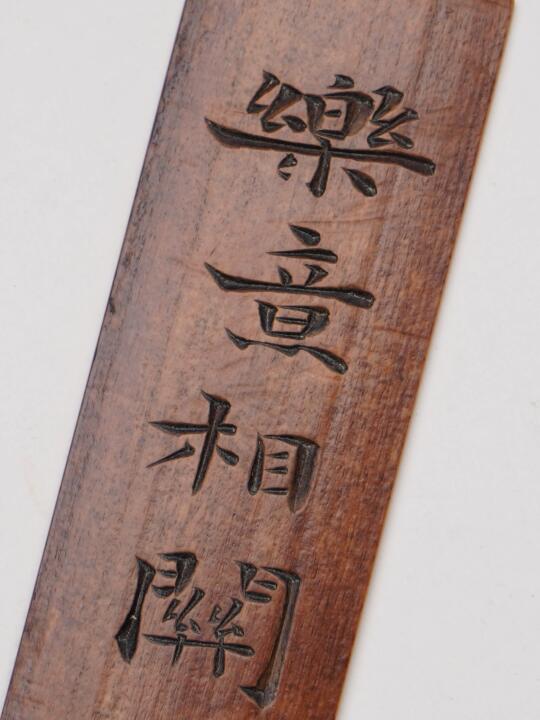 樂意相關